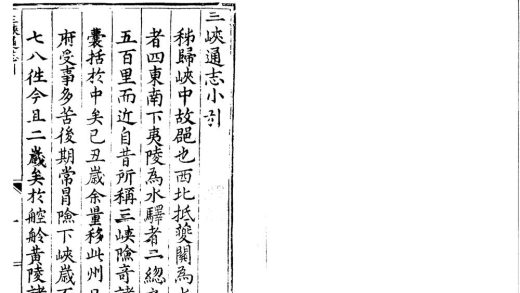 三峽通志小引
秭歸峽中故邑也西北抵夔關為
者四東南下夷陵為水驛者二總
五百里而近自昔所稱三峽險奇諸
囊括於中矣己丑歲余量移此州
府受事多苦後期常冒險下峽歲
七八往今且二歲矣於舲黃陵
三峽通志